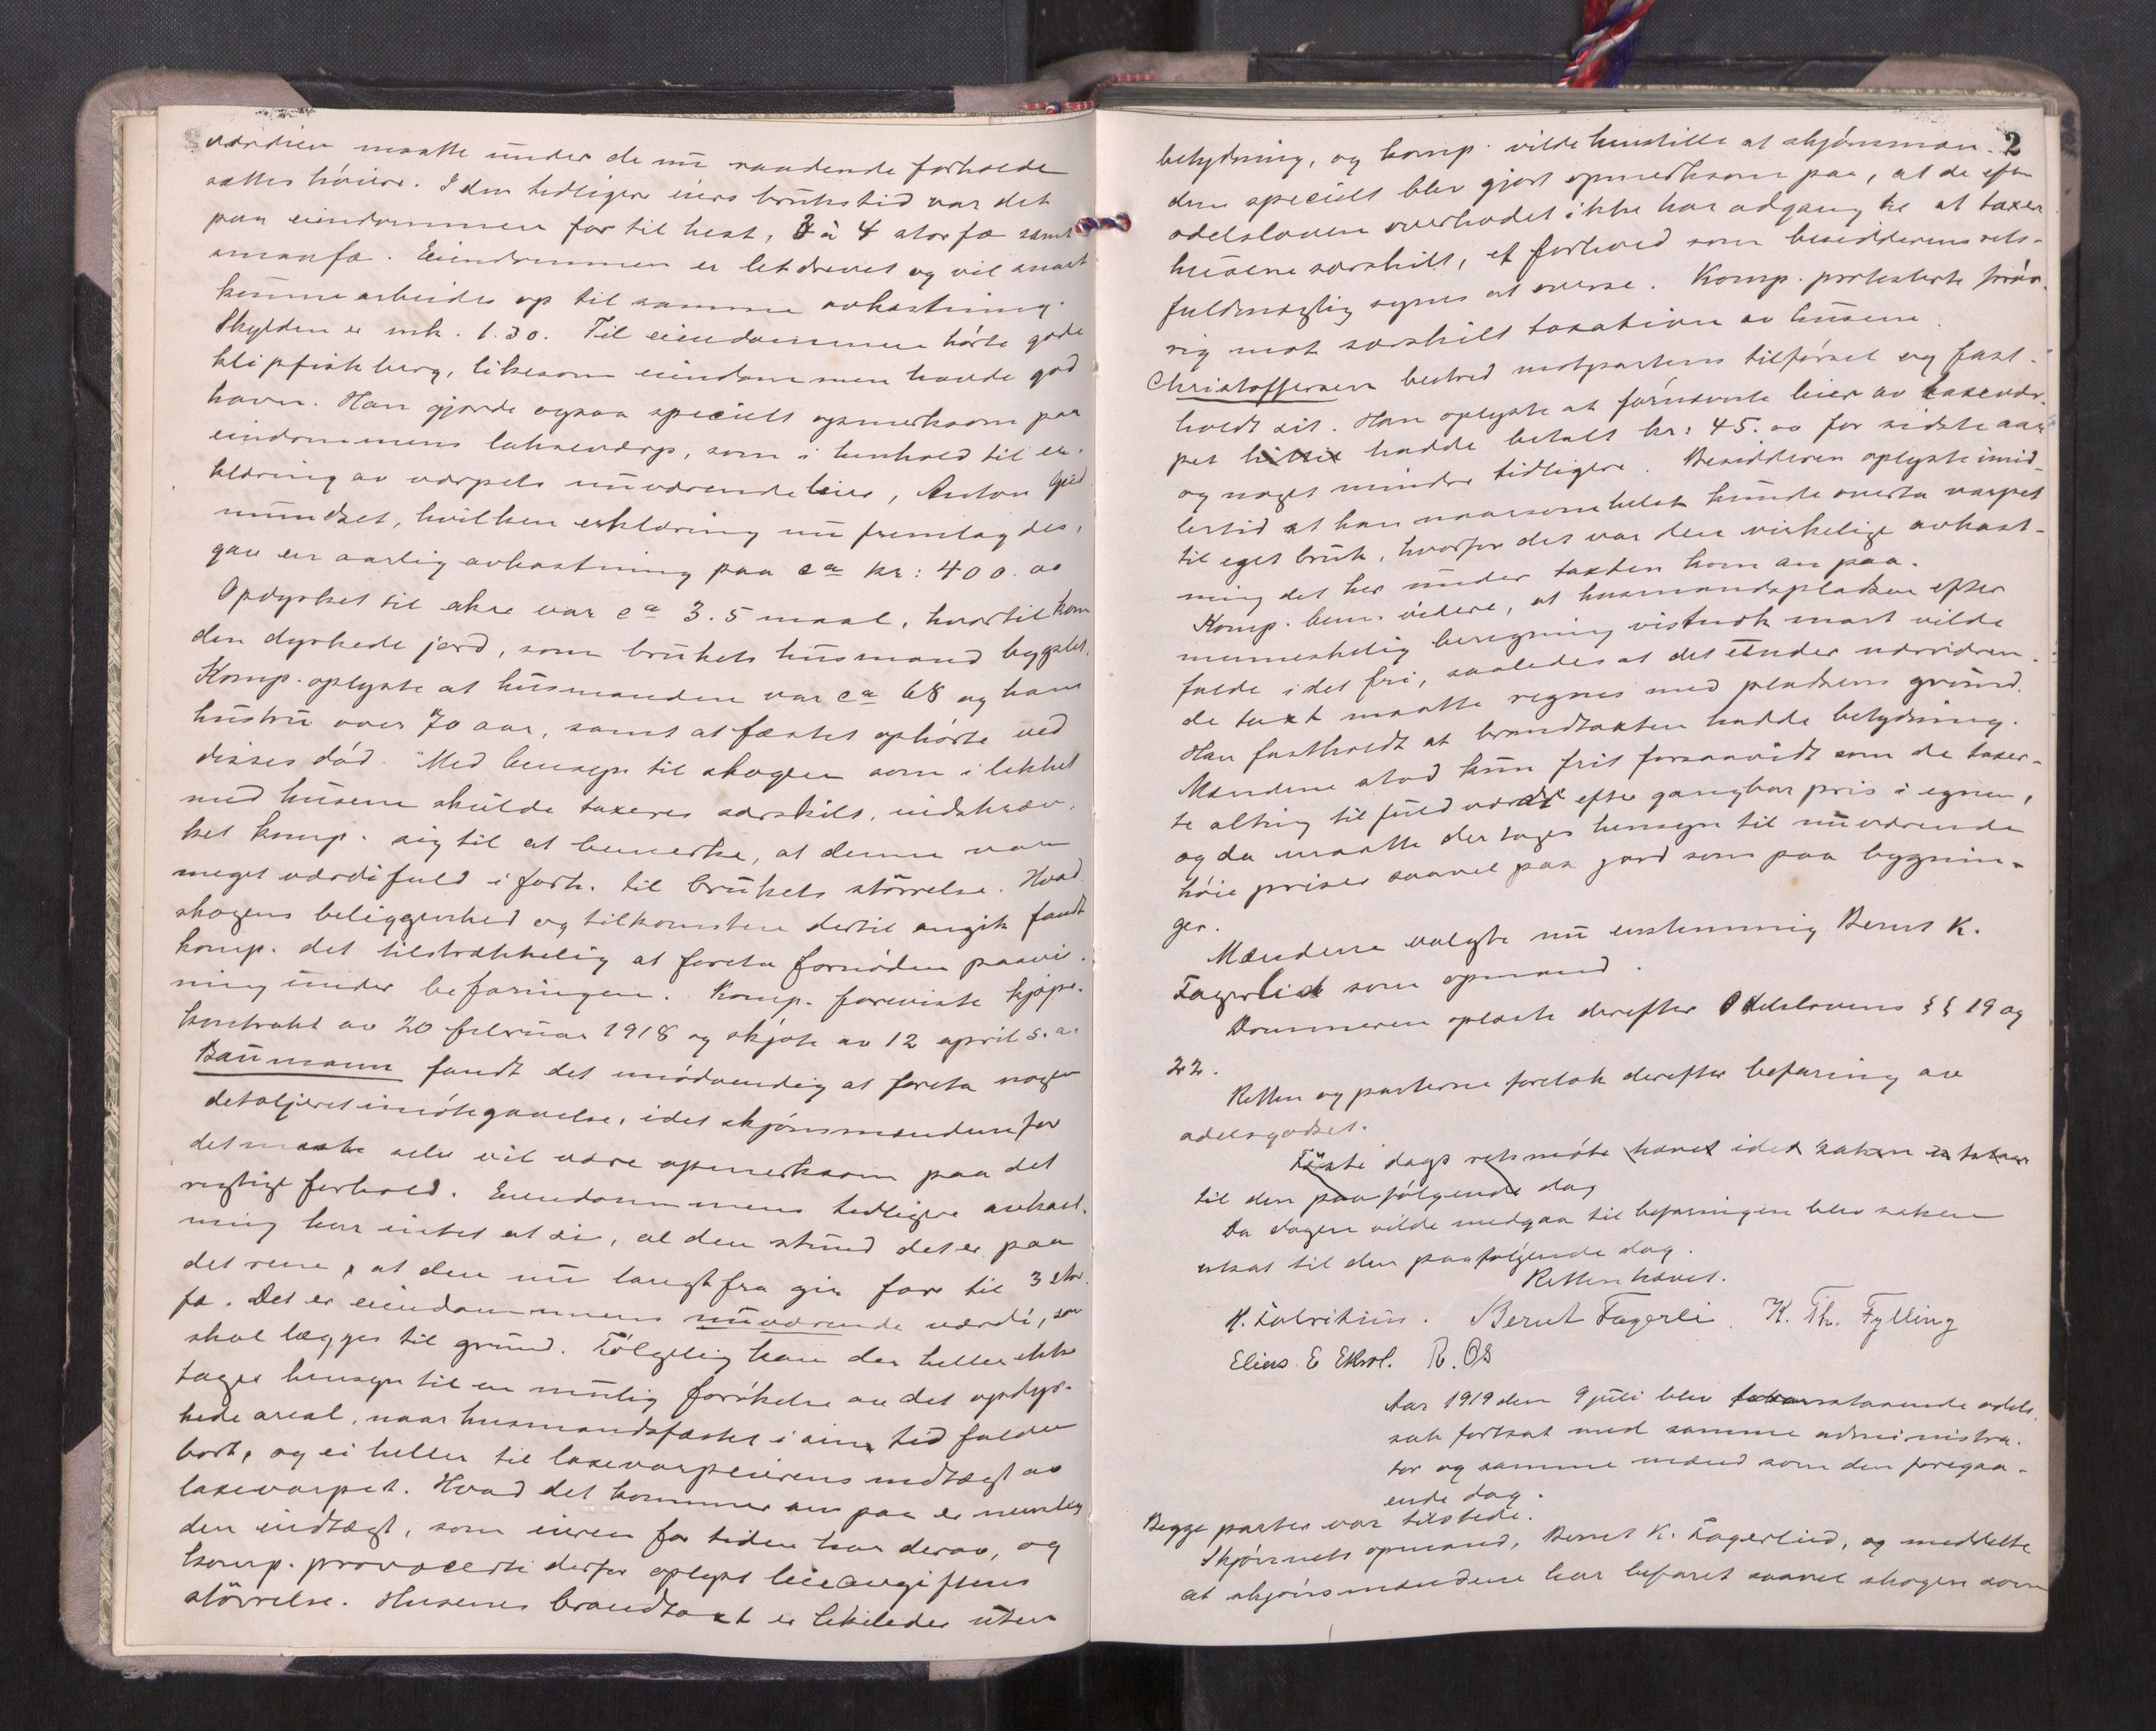 værdien maatte under de nu raadende forholde
sættes høiere. I den tidligere eiers brukstid var det
paa eiendommen for til hest, 3 à 4 storfæ samt
smaafæ. Eiendommen er letdrevet og vil snart
kunne arbeides op til samme avkastning.
Skylden er mk. 1.30. Til eiendommen hørte gode
klipfiskberg, likesom eiendommen havde god
havn. Han gjorde ogsaa specielt opmerksom paa
eiendommens laksevarp, som i henhold til er-
klæring av varpets nuværende leier, Anton Gud
mundset, hvilken erklæring nu fremlagdes,
gav en aarlig avkastning paa ca kr: 400.00
Opdyrket til aker var ca 3.5 maal, hvortil kom
den dyrkede jord, som brukets husmand bygslet.
Komp. oplyste at husmanden var ca 68 og hans
hustru over 70 aar, samt at fæstet ophørte ved
disses død. Med hensyn til skogen som i likhet
med husene skulde taxeres særskilt, indskræn-
ket komp. sig til at bemerke, at denne var
meget værdifuld i forh. til brukets størrelse. Hvad
skogens beliggenhed og tilkomsten dertil angik fandt
komp. det tilstrækkelig at foreta fornøden paavis-
ning under befaringen. Komp. foreviste kjøpe-
kontrakt av 20 februar 1918 og skjøte av 12 april s.a.
Baumann fandt det unødvendig at foreta nogen
detaljeret imøtegaaelse, idet skjønsmændene for
det meste selv vil være opmerksom paa det
rigtige forhold. Eiendommens tidligere avkast-
ning har intet at si, al den stund det er paa
det rene, at den nu langt fra gir for til 3 stor-
fæ. Det er eiendommens nuværende værdi, som
skal lægges til grund. Følgelig kan der heller ikke
tages hensyn til en mulig forøkelse av det opdyr-
kede areal, naar husmandsfæstet i sin tid falder
bort, og ei heller til laxevarpleierens indtægt av
laxevarpet. Hvad det kommer an paa er nemlig
den indtægt, som eieren for tiden har derav, og
komp. provocerte derfor oplyst leieavgiftens
størrelse. Husenes brandtaxt er likeledes uten
2
betydning, og komp. vilde henstille at skjønsmæn-
dene specielt blev gjort opmerksom paa, at de efter
odelsloven overhodet ikke har adgang til at taxere
husene særskilt, et forhold som besidderens rets-
fuldmægtig synes at overse. Komp. protesterte forøv-
rig mot særskilt taxation av husene.
Christoffersen bestred motpartens tilførsel og fast-
holdt sit. Han oplyste at førnævnte leier av laxevar-
pet hadde betalt kr: 45.00 for sidste aar
og noget mindre tidligere. Besidderen oplyste imid-
lertid at han naarsomhelst kunde overta varpet
til eget bruk, hvorfor det var den virkelige avkast-
ning det her under taxten kom an paa.
Komp. bem. videre, at husmandspladsen efter
menneskelig beregning vistnok snart vilde
falde i det fri, saaledes at det under nærværen-
de taxt maatte regnes med pladsens grund.
Han fastholdt at brandtaxten hadde betydning.
Mændene stod kun frit forsaavidt som de taxer-
te alting til fuld værdi efter gangbar pris i egnen,
og da maatte der tages hensyn til nuværende
høie priser saavel paa jord som paa bygnin-
ger.
Mændene valgte nu enstemmig Bernt K.
Fagerlid som opmand.
Dommeren oplæste derefter Odelslovens §§ 19 og
22.
Retten og parterne foretok derefter befaring av
odelsgodset.
Første dags retsmøte hævet idet saken
til den paafølgende dag
Da dagen vilde medgaa til befaringen blev saken
utsat til den paafølgende dag.
Retten hævet.
Bernt Fagerli. K. Th. Fylling
Elias E R. OS
Aar 1919 den 9 juli blev odels-
sak fortsat med samme administra-
tor og samme mænd som den foregaa-
ende dag.
Begge parter var tilstede.
Skjønnets opmand, Bernt K. Fagerlid, og meddelte
at skjønsmændene har befaret saavel skogen som